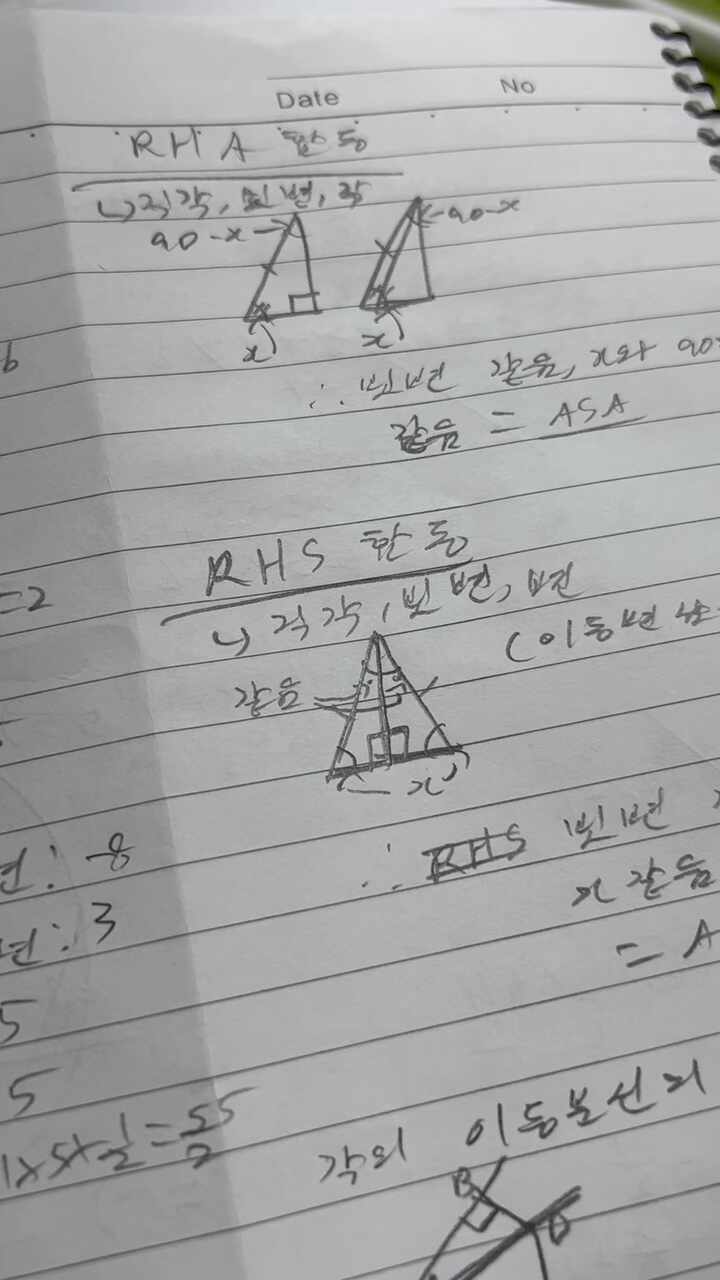 Date No
RHA 합동
↳직각, 빗변, 각
90-x 90-x
x x
b
∴ 빗변 같음, x와 90
같음 = ASA
=2
RHS 합동
↳ 직각, 빗변, 변
(이등변
같음
x
변: -8
∴ RHS 빗변
변: 3
x 같음
= A
5
5
1x5x1/2=55/2
각의 이등분선의
B